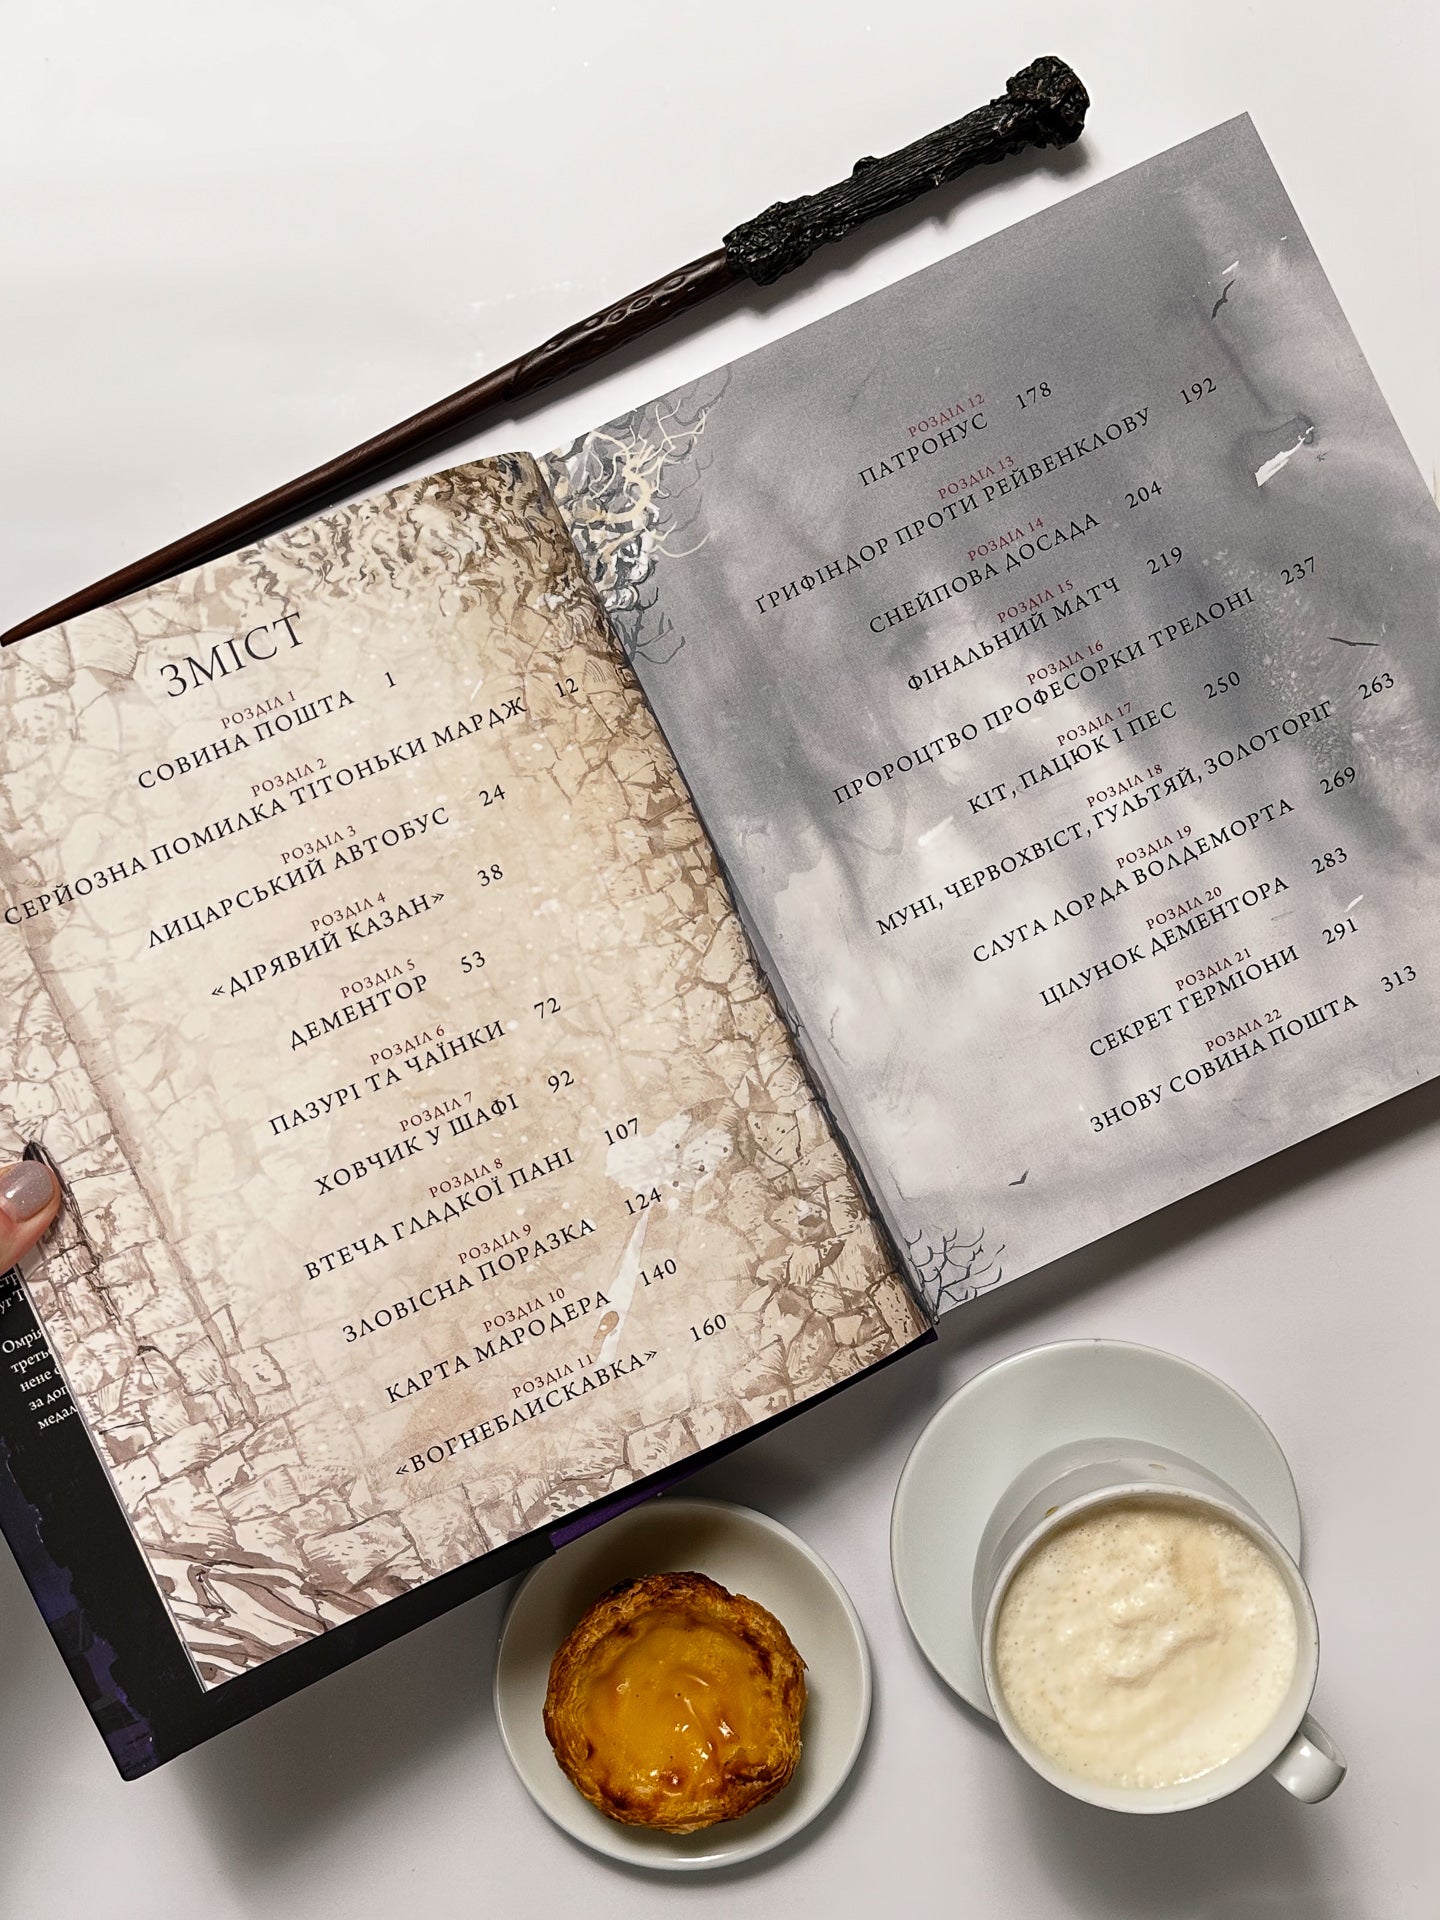 ЗМІСТ
РОЗДІЛ 1
СОВИНА ПОШТА 1
РОЗДІЛ 2
СЕРЙОЗНА ПОМИЛКА ТІТОНЬКИ МАРДЖ 12
РОЗДІЛ 3
ЛИЦАРСЬКИЙ АВТОБУС 24
РОЗДІЛ 4
«ДІРЯВИЙ КАЗАН» 38
РОЗДІЛ 5
ДЕМЕНТОР 53
РОЗДІЛ 6
ПАЗУРІ ТА ЧАЇНКИ 72
РОЗДІЛ 7
ХОВЧИК У ШАФІ 92
РОЗДІЛ 8
ВТЕЧА ГЛАДКОЇ ПАНІ 107
РОЗДІЛ 9
ЗЛОВІСНА ПОРАЗКА 124
РОЗДІЛ 10
КАРТА МАРОДЕРА 140
РОЗДІЛ 11
«ВОГНЕБЛИСКАВКА» 160
РОЗДІЛ 12
ПАТРОНУС 178
РОЗДІЛ 13
ҐРИФІНДОР ПРОТИ РЕЙВЕНКЛОВУ 192
РОЗДІЛ 14
СНЕЙПОВА ДОСАДА 204
РОЗДІЛ 15
ФІНАЛЬНИЙ МАТЧ 219
РОЗДІЛ 16
ПРОРОЦТВО ПРОФЕСОРКИ ТРЕЛОНІ 237
РОЗДІЛ 17
КІТ, ПАЦЮК І ПЕС 250
РОЗДІЛ 18
МУНІ, ЧЕРВОХВІСТ, ГУЛЬТЯЙ, ЗОЛОТОРІГ 263
РОЗДІЛ 19
СЛУГА ЛОРДА ВОЛДЕМОРТА 269
РОЗДІЛ 20
ЦІЛУНОК ДЕМЕНТОРА 283
РОЗДІЛ 21
СЕКРЕТ ГЕРМІОНИ 291
РОЗДІЛ 22
ЗНОВУ СОВИНА ПОШТА 313